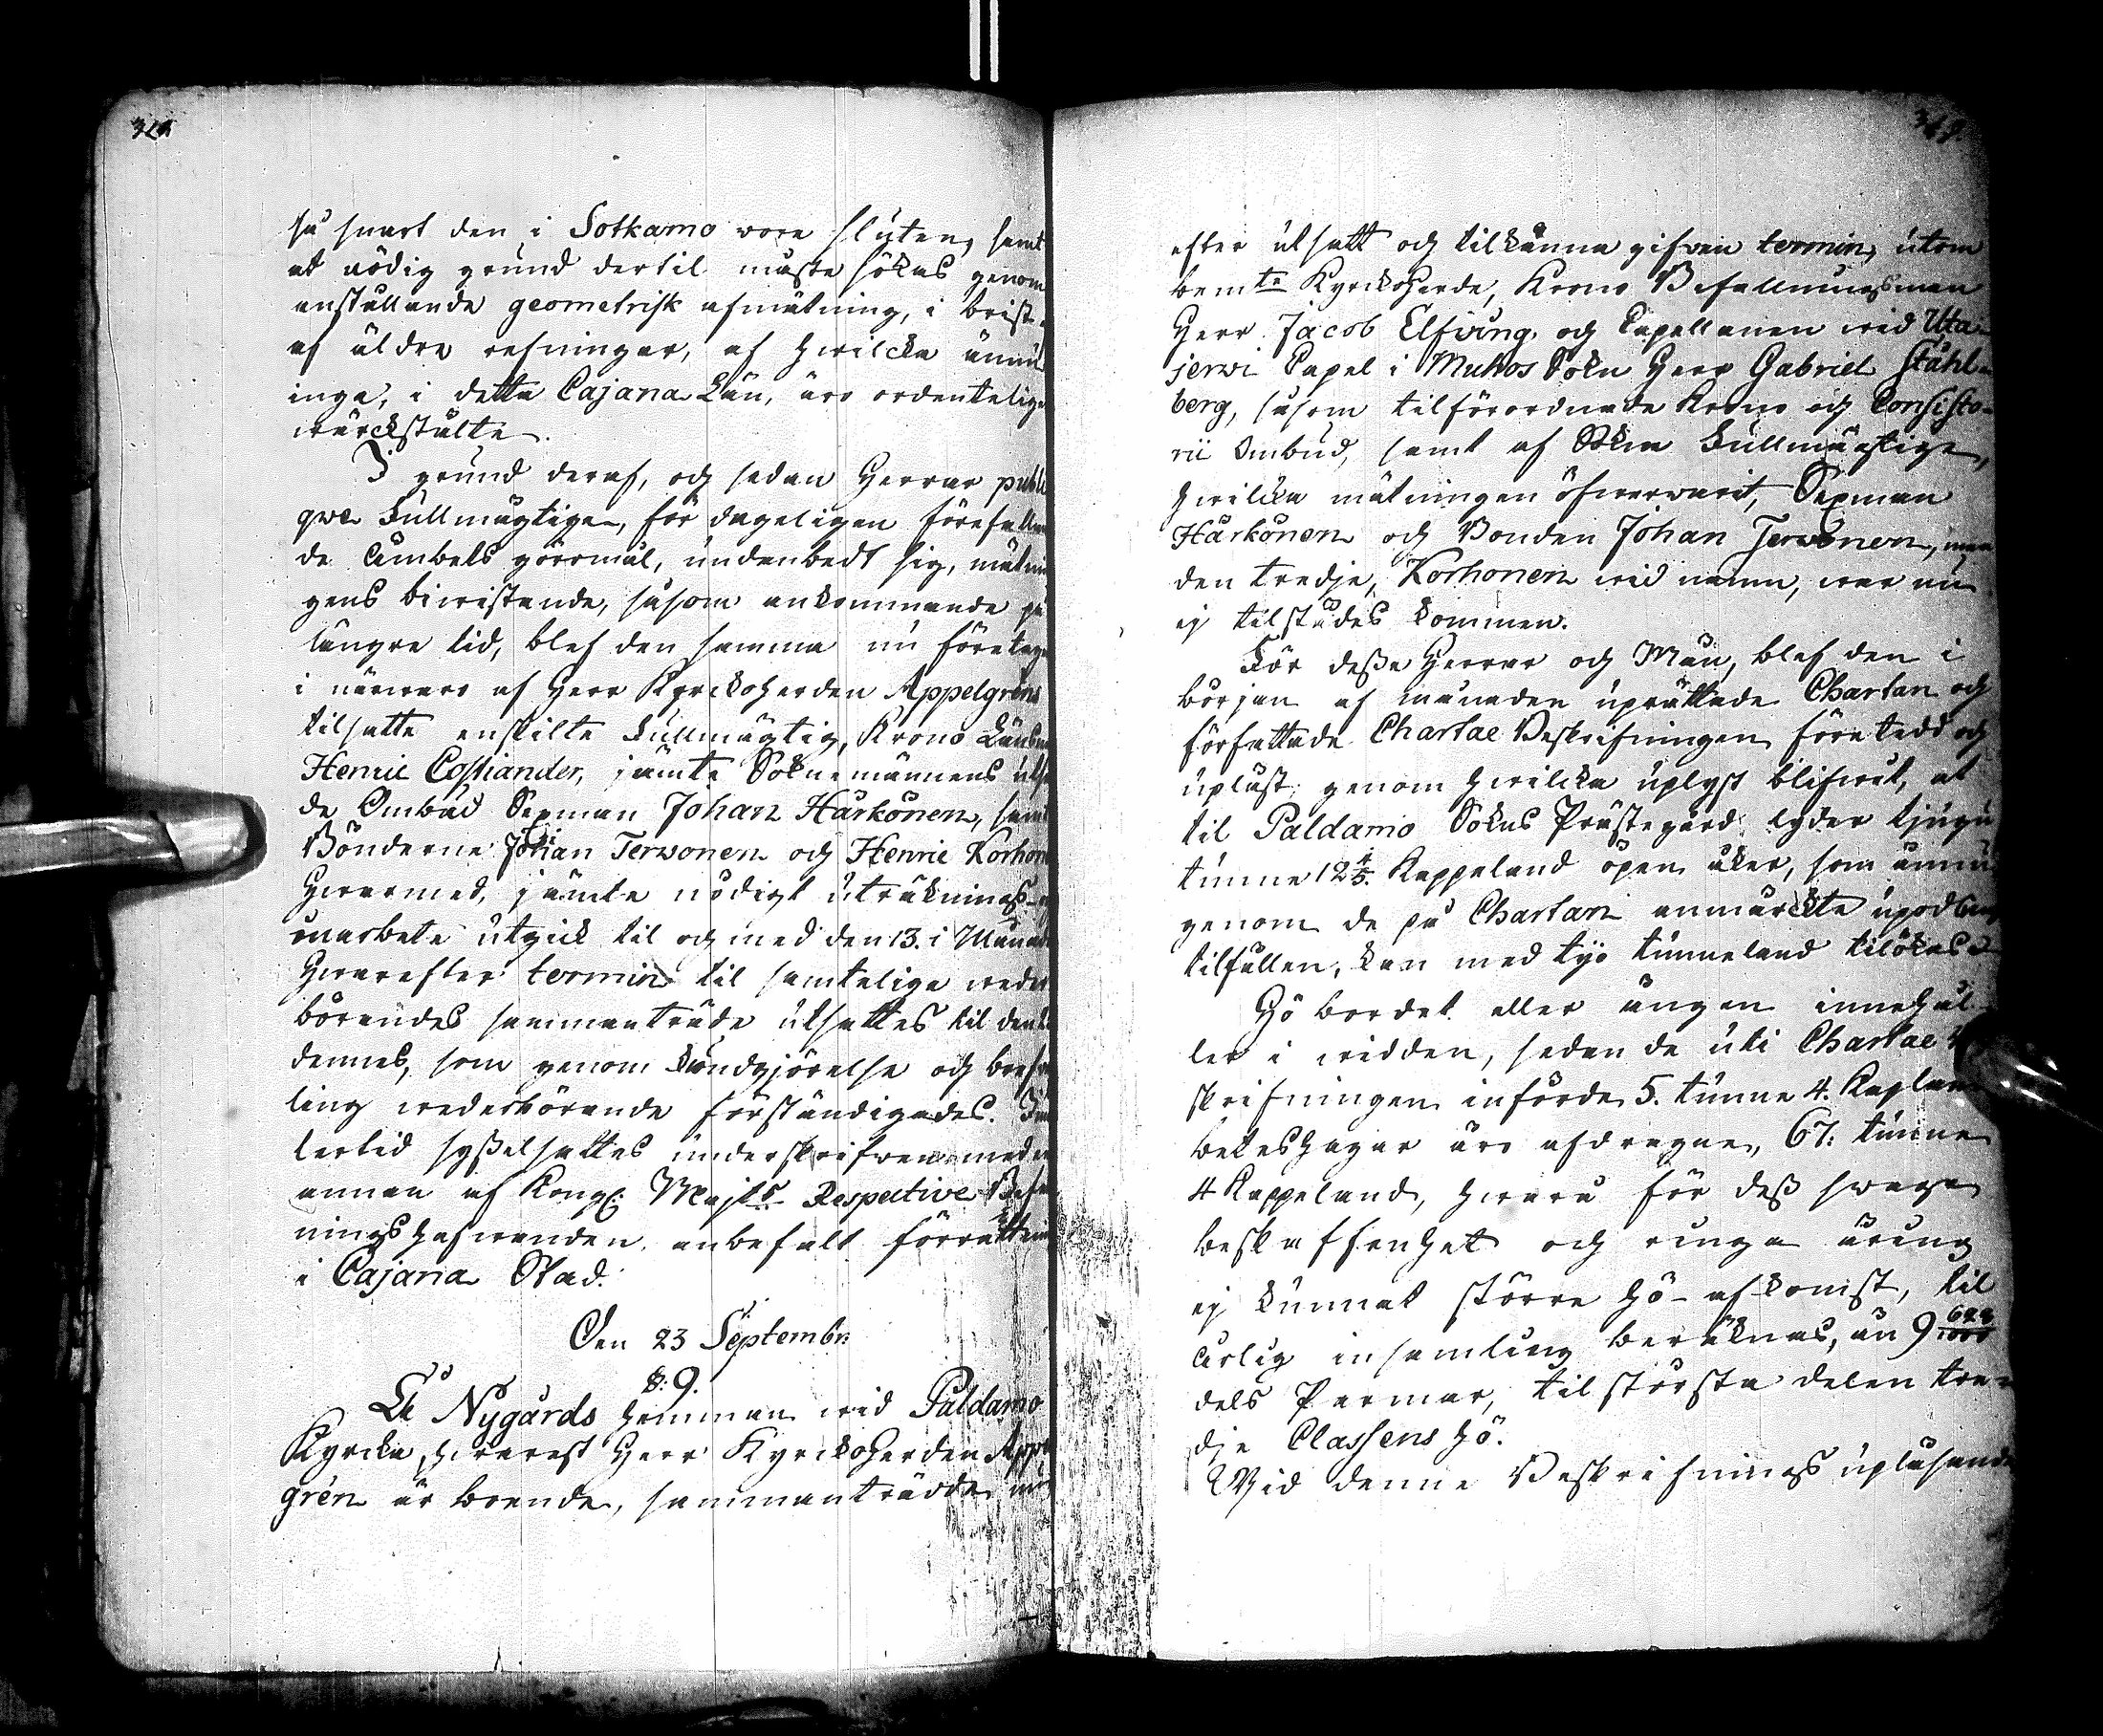 så snart den i Sotkamo vore sluten, samt
at nödig grund dertil måste sökas genom
anställande geometrisk afmätning, i brist
af äldre refningar, af hwilcka ännu
inga, i detta Cajana Län, äro ordentelige
wärckstälte.
I grund deraf, och sedan Herrar publi
qve Fullmägtige, för dageligen förefallan
de Ämbets göromål, undanbedt sig, mätnin
gens biwistande, såsom ankommande på
längre tid, blef den samma nu företagen
i närwaro af Herr Kyrckoherden Appelgréns
tilsatte enskilte Fullmägtig, Krono Länsman
Henric Costiander, jämte Soknemännens utsed
de Ombud Sexman Johan Härkönen, samt
Bönderne Johan Terwonen och Henric Korhonen
Hwarmed, jämte nödigt uträknings
arbete utgick til och med den 13. i Månaden
Hwarefter termin til samtelige weder
börandes sammanträde utsattes til denna
dennes, som genom kundgjörelse och bref
ling wederbörande förständigades. Im
lertid sysselsattes underskrifwen med en
annan af Kongl. Majts Respective Befal
ningshafwanden anbefalt förrättning
i Cajana Stad.
Den 23 September
§. 9.
På Nygårds hemman wid Paldamo
Kyrcka, hwarest Herr Kyrckoherden Appel
grén är boende, sammanträdde nu
efter utsatt och tilkänna gifven termin, utom
bemte Kyrckoherde, Krono Befallningsman
Herr Jacob Elfving, och Capellanen wid Uta-
jerwi Capel i Muhos Sokn Herr Gabriel Ståhl-
berg, såsom tilförordnade Krono och Consisto-
rii Ombud, samt af Sokne Fullmägtige,
hwilcka mätningen öfwerwarit, Sexman
Härkönen och Bonden Johan Terwonen, men
den tredje, Korhonen wid namn, war nu
ej tilstädes kommen.
För desse Herrar och Män, blef den i
början af månaden uprättade Chartan och
författade Chartae Beskrifningen företedd och
upläst; genom hwilcka uplyst blifwit, at
til Paldamo Sokns Prästegård lyder tjugu
tunne 12 4/5. Kappeland öpen åker, som ännu
genom de på Chartan anmärckte upodlings
tilfällen, kan med tjo tunneland tilökas.
Hö bordet eller ängen innehål-
ler i widden, sedan de uti Chartae Be
skrifningen införde 5. tunne 4. Kapland
beteshagar äro afdragne, 67: tunne
4 Kappeland, hwaraf för dess swaga
beskaffenhet och ringa äring
ej kunnat större hö-afkomst, til
årlig insamling beräknas, än 9
dels Parmar, til största delen tre-
dje Classens hö.
Wid denne Beskrifnings upläsande